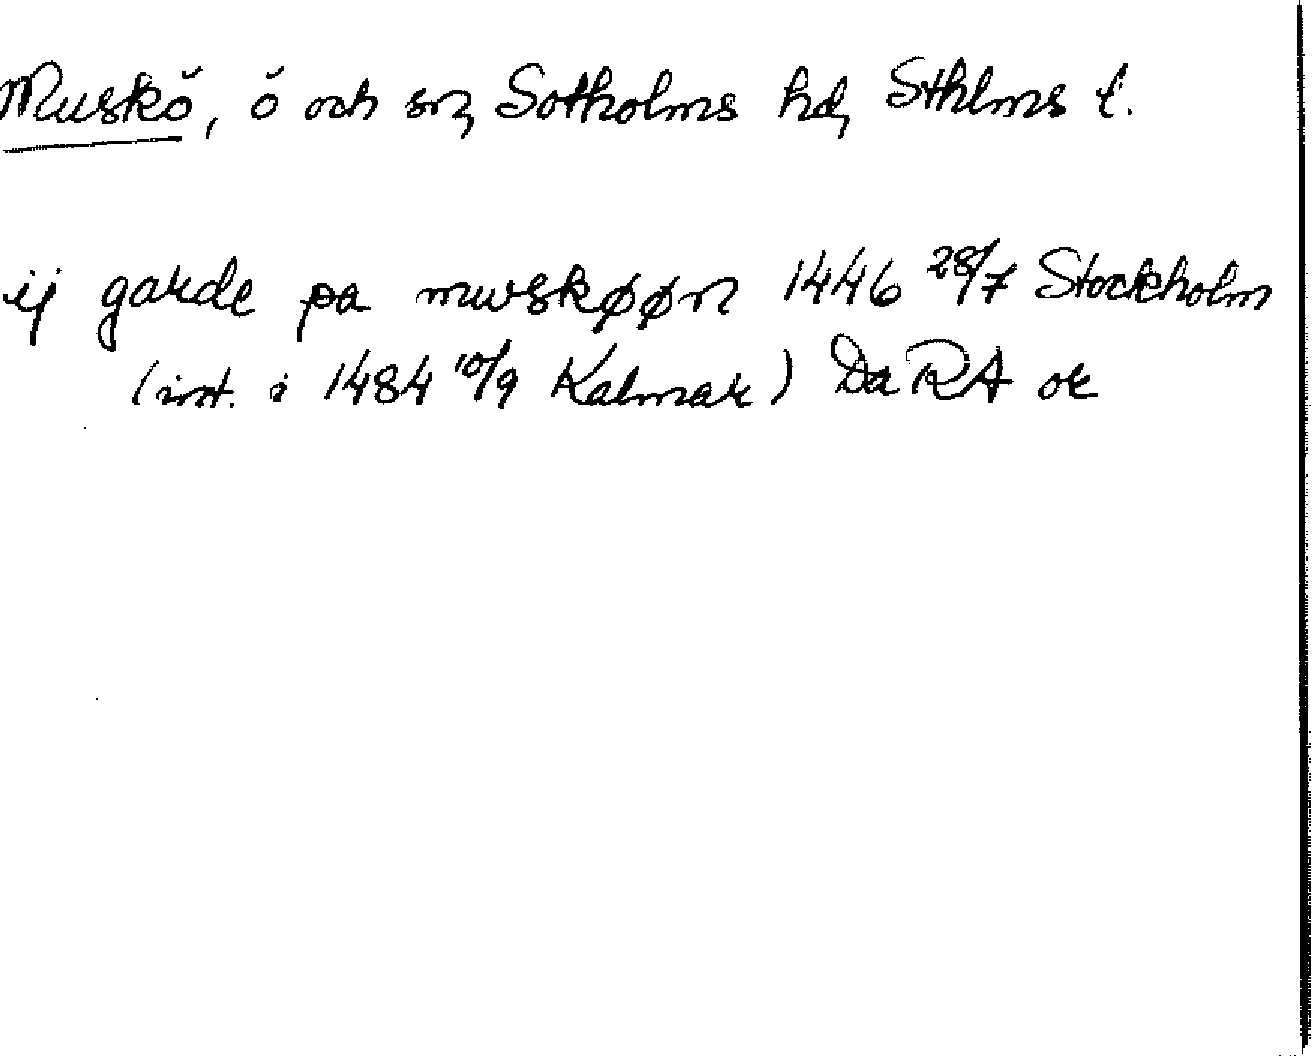 Muskö, ö och sn, Sotholms hd, Sthlms l.
ij garde pa mwskøøn 1446 28/7 Stockholm
(int. i 1484 10/9 Kalmar) DaRA or